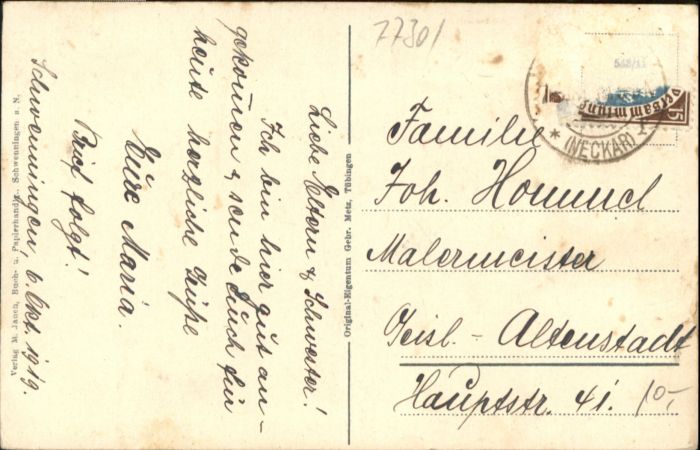 77301
Liebe Eltern & Schwester!
Ich bin hier gut an-
gekommen & sende Euch für
heute herzliche Grüße
Eure Maria.
Brief folgt!
Schwenningen 6. Okt. 1919.
Verlag M. Jauch, Buch- u. Papierhandlg., Schwenningen a. N.
Original-Eigentum Gebr. Metz, Tübingen
(NECKAR)
Familie
Joh. Hommel
Malermeister
Geisl.-Altenstadt
Hauptstr. 41.
10,-